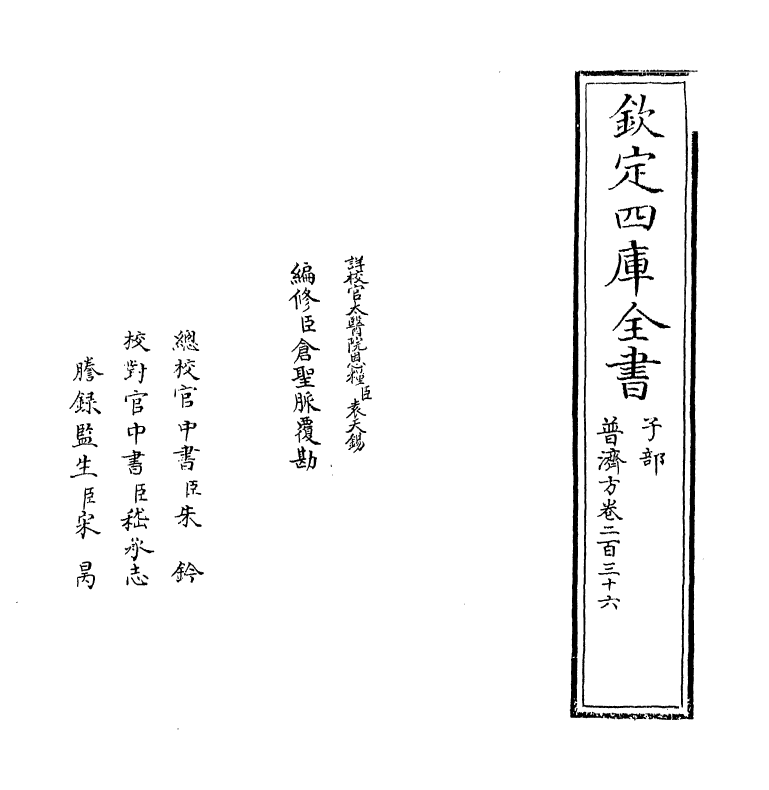 欽定四庫全書
子部
普濟方卷二百三十六
詳校官太醫院恩糧臣袁天錫
編修臣倉聖脈覆勘
總校官中書臣朱鈐
校對官中書臣嵇承志
謄録監生臣宋昺